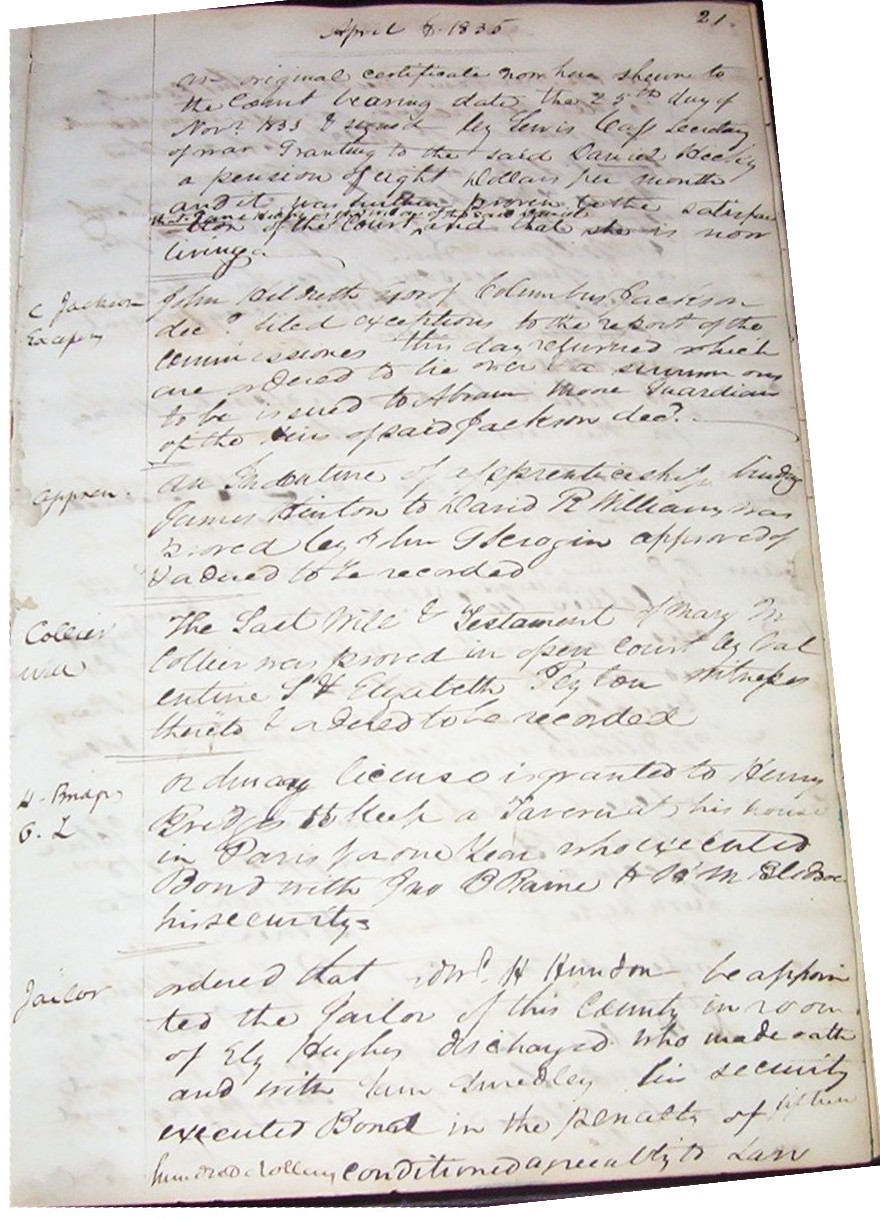 April 6. 1835
21.
An original certificate now here shewn to
the Court bearing date the 25th day of
Novr 1833 & signed by Lewis Cass Secretary
of war Granting to the said Daniel
a pension of eight Dollars per month
and it was further proven to the satisfac
of the said
tion of the Court, and that she is now
living
C Jackson
Excep
John Hildreth Exor of Columbus Jackson
decd filed exceptions to the report of the
commissioners this day returned which
are ordered to lie over & a summons
to be issued to Abram Guardian
of the heirs of said Jackson decd.
appren.
An Indenture of apprenticeship binding
James Hinton to David R Williams was
proved by John Scrogin approved of
& ordered to be recorded
Collier
Will
The Last Will & Testament of Mary M
Collier was proved in open Court by Val
entine S & Elizabeth Peyton Witnesses
thereto & ordered to be recorded
H. Bridges
O. L
Ordinary license is granted to Henry
Bridges to keep a Tavern at his house
in Paris for one Year who executed
Bond with Jno B Raine & Wm M Bledsoe
his securitys
Jailor
ordered that H be appoin
ted the Jailor of this County in room
of Ely Hughes discharged who made oath
and with Smedley his security
executed Bond in the penalty of fifteen
hundred dollars conditioned agreeably to Law